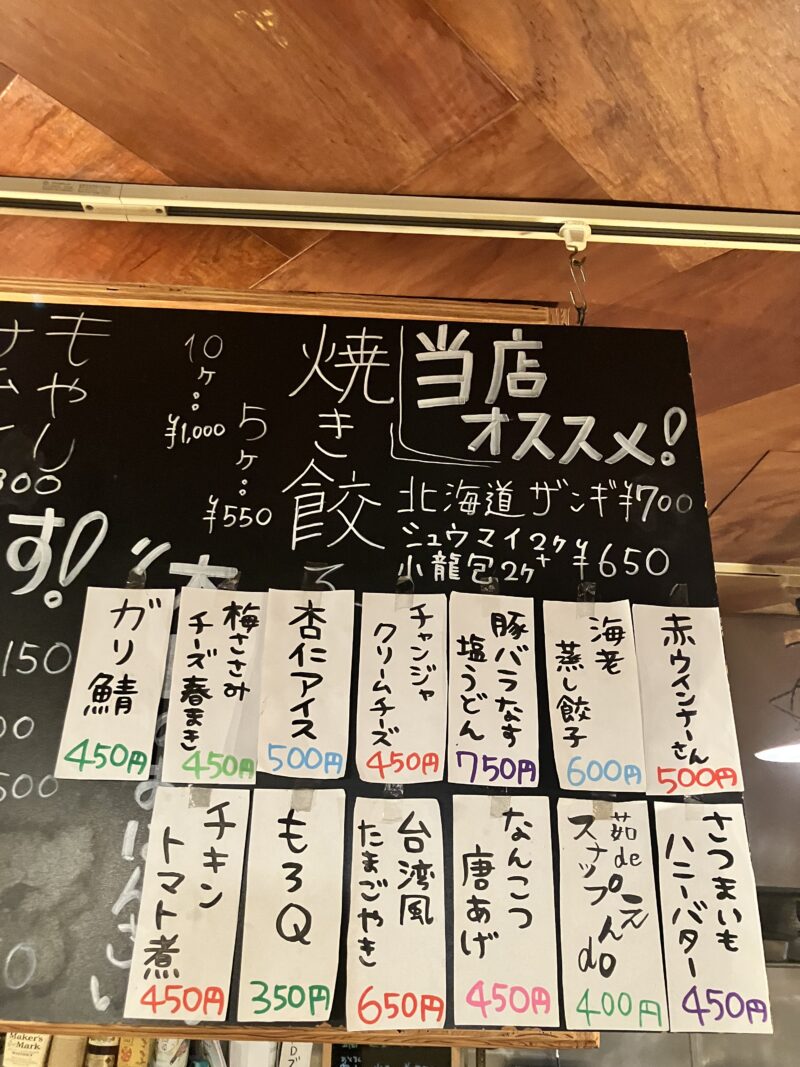 当店
オススメ!
北海道ザンギ¥700
シュウマイ2ケ+
小龍包2ケ
¥650
焼き餃子
5ケ:
¥550
10ケ:
¥1,000
もやし
す!
赤ウインナーさん
500円
海老
蒸し餃子
600円
豚バラなす
塩うどん
750円
チャンジャ
クリームチーズ
450円
杏仁アイス
500円
梅ささみ
チーズ春まき
450円
ガリ鯖
450円
さつまいも
ハニーバター
450円
茹de
スナップえんdo
400円
なんこつ
唐あげ
450円
台湾風
たまごやき
650円
もろQ
350円
チキン
トマト煮
450円
Maker's
Mark